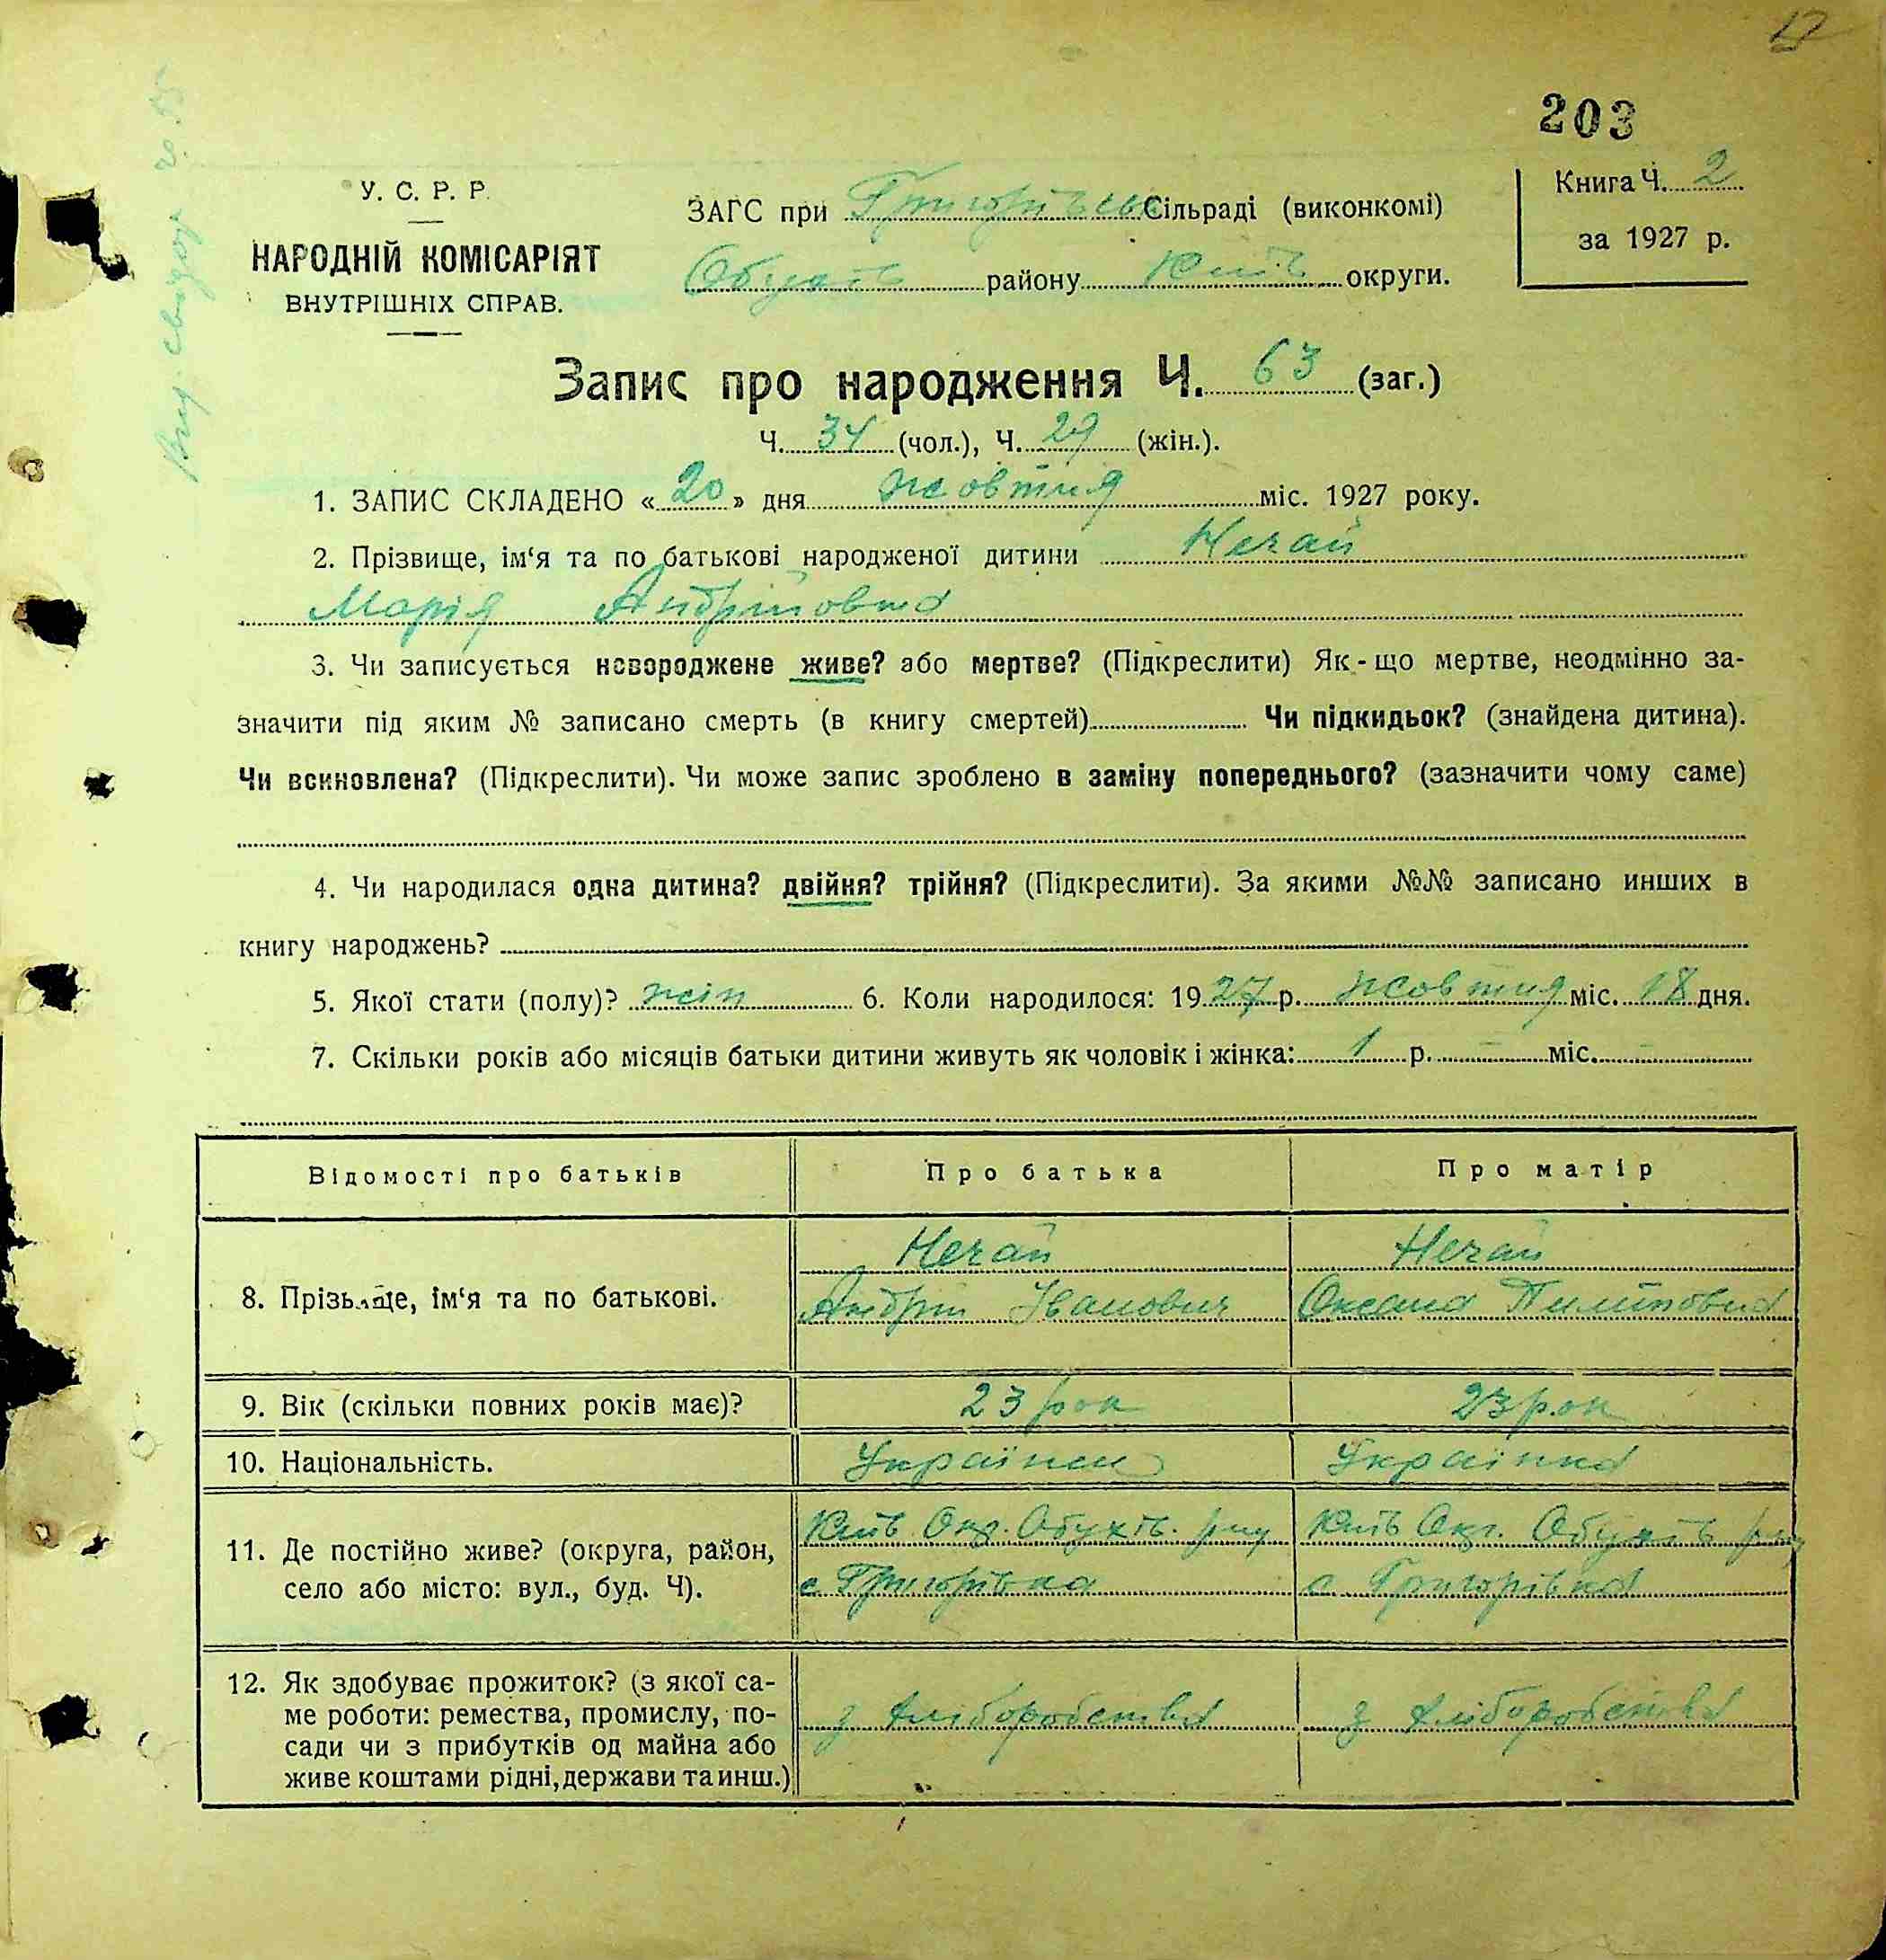 203
У. С. Р. Р.
НАРОДНІЙ КОМІСАРІЯТ
ВНУТРІШНІХ СПРАВ.
ЗАГС при Григорівськ Сільраді (виконкомі)
Обухів району Київ округи.
Книга Ч. 2
за 1927 р.
Запис про народження Ч. 63 (заг.)
Ч. 34 (чол.), Ч. 29 (жін.).
1. ЗАПИС СКЛАДЕНО « 20 » дня жовтня міс. 1927 року.
2. Прізвище, ім‘я та по батькові народженої дитини Нечай
Марія Андрійовна
3. Чи записується новороджене живе? або мертве? (Підкреслити) Як-що мертве, неодмінно за-
значити під яким № записано смерть (в книгу смертей) Чи підкидьок? (знайдена дитина).
Чи всиновлена? (Підкреслити). Чи може запис зроблено в заміну попереднього? (зазначити чому саме)
4. Чи народилася одна дитина? двійня? трійня? (Підкреслити). За якими №№ записано инших в
книгу народжень?
5. Якої стати (полу)? жін 6. Коли народилося: 1927 р. жовтня міс. 18 дня.
7. Скільки років або місяців батьки дитини живуть як чоловік і жінка: 1 р. - міс. -
Відомості про батьків Про батька Про матір
8. Прізвище, ім‘я та по батькові.
Нечай
Андрій Іванович
Нечай
Оксана Пилиповна
9. Вік (скільки повних років має)? 23 рок 23 рок
10. Національність. Українец Українка
11. Де постійно живе? (округа, район,
село або місто: вул., буд. Ч).
Київ Окр. Обухів. рну
с Григорівка
Київ Окр. Обухів рну
с Григорівка
12. Як здобуває прожиток? (з якої са-
ме роботи: ремества, промислу, по-
сади чи з прибутків од майна або
живе коштами рідні, держави та инш.)
з хліборобства
з хліборобства